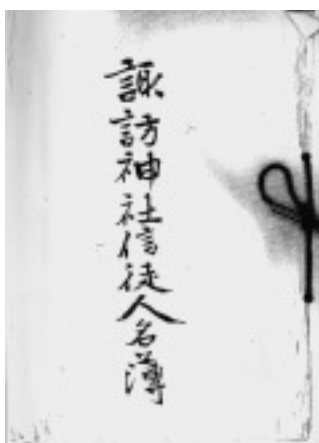 諏訪神社信徒人名簿